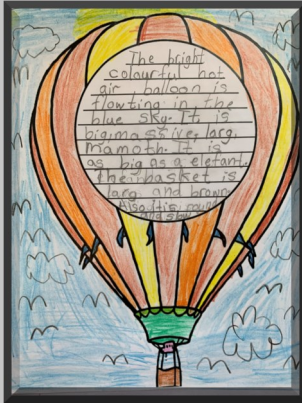 The bright
colourful hot
air balloon is
flowting in the
blue sky. It is
big,massive, larg,
mamoth. It is
as big as a elefant.
The basket is
larg and brown
Also it is rough